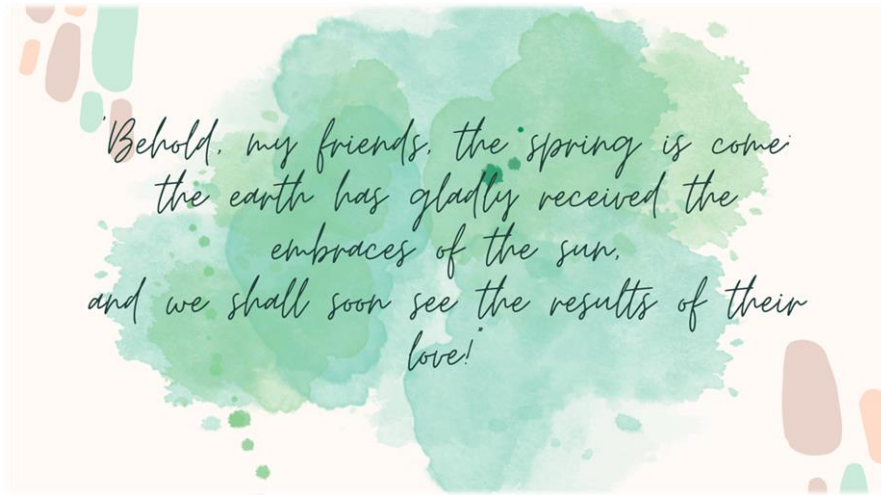 "Behold, my friends, the spring is come;
the earth has gladly received the
embraces of the sun,
and we shall soon see the results of their
love!"